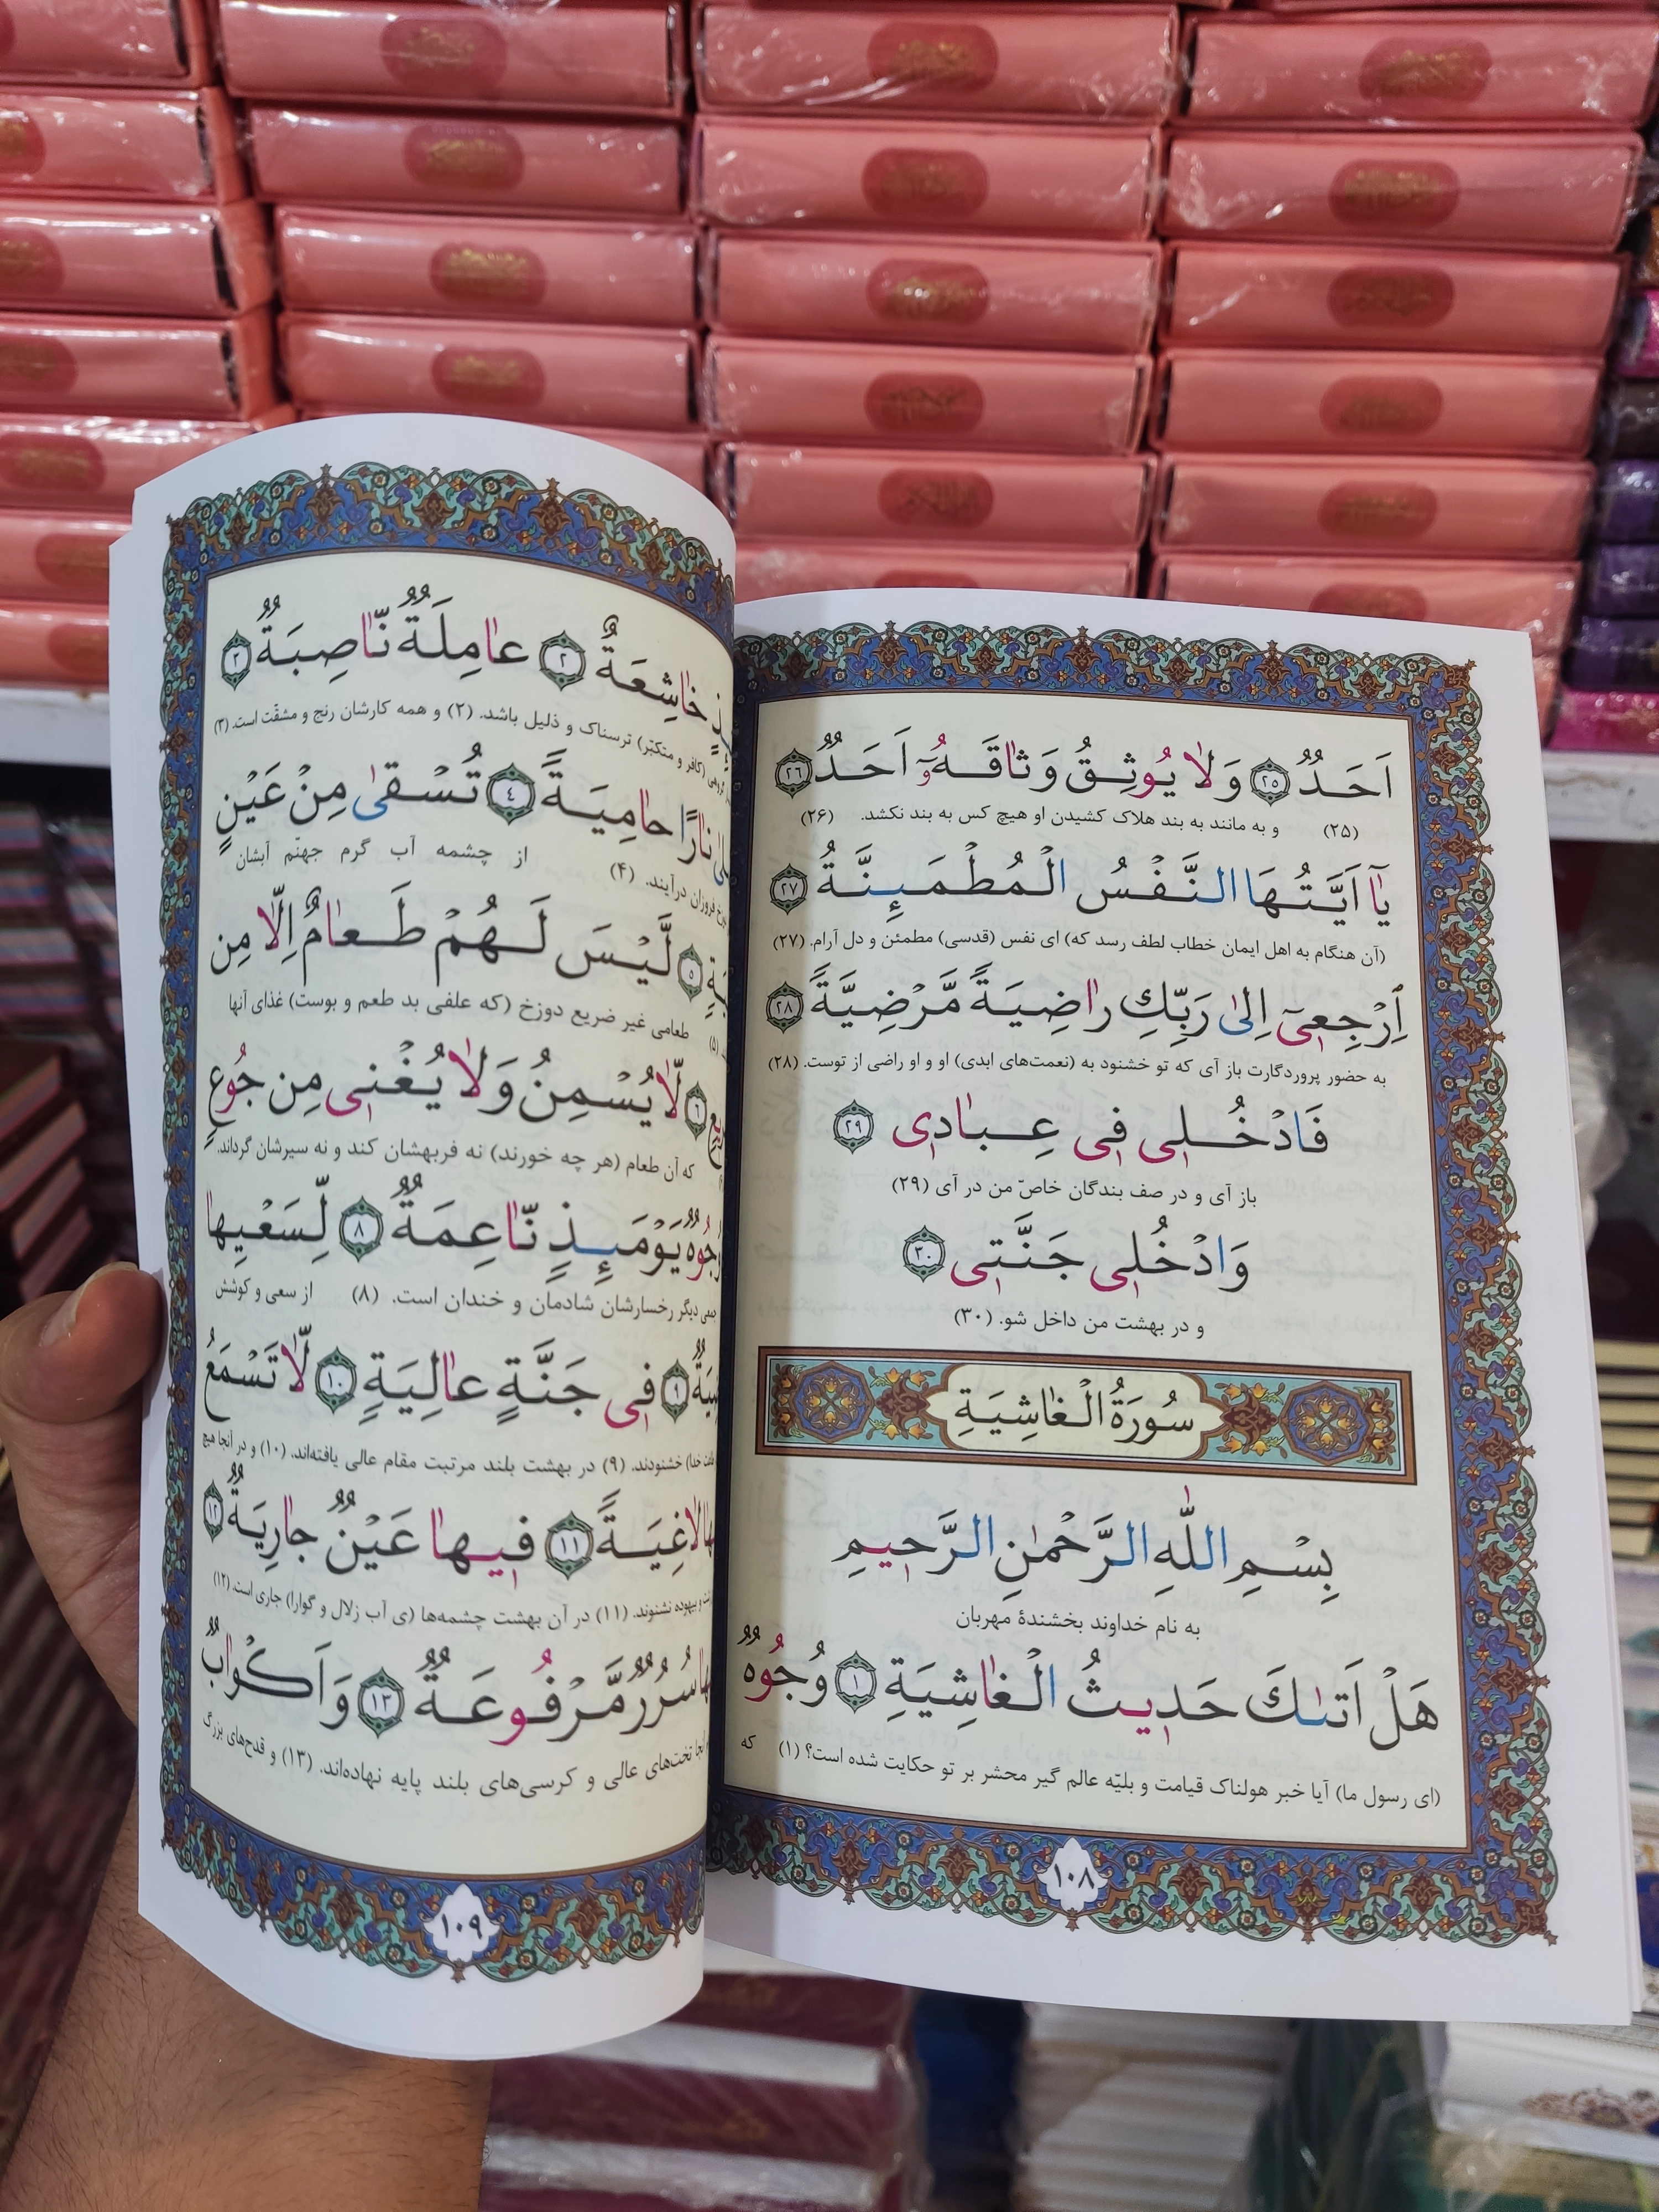 اَحَدٌ ﴿٢٥﴾ وَلا يُوثِقُ وَثاقَهُٓ اَحَدٌ ﴿٢٦﴾
(۲۵) و به مانند به بند هلاک کشیدن او هیچ کس به بند نکشد. (۲۶)
يآ اَيَّتُهَا النَّفْسُ الْمُطْمَئِنَّةُ ﴿٢٧﴾
(آن هنگام به اهل ایمان خطاب لطف رسد که) ای نفس (قدسی) مطمئن و دل آرام. (۲۷)
اِرْجِعيٓ اِلىٰ رَبِّكِ راضِيَةً مَّرْضِيَّةً ﴿٢٨﴾
به حضور پروردگارت باز آی که تو خشنود به (نعمت‌های ابدی) او و او راضی از توست. (۲۸)
فَادْخُلي في عِبادي ﴿٢٩﴾
باز آی و در صف بندگان خاصّ من در آی (۲۹)
وَادْخُلي جَنَّتي ﴿٣٠﴾
و در بهشت من داخل شو. (۳۰)
سُورَةُ الْغاشِيَةِ
بِسْمِ اللّٰهِ الرَّحْمٰنِ الرَّحيمِ
به نام خداوند بخشندهٔ مهربان
هَلْ اَتىٰكَ حَديثُ الْغاشِيَةِ ﴿١﴾ وُجُوهٌ
(ای رسول ما) آیا خبر هولناک قیامت و بلیّه عالم گیر محشر بر تو حکایت شده است؟ (۱) که
۱۰۸
خاشِعَةٌ ﴿٢﴾ عامِلَةٌ نّاصِبَةٌ ﴿٣﴾
گروهی (کافر و متکبّر) ترسناک و ذلیل باشد. (۲) و همه کارشان رنج و مشقّت است. (۳)
نارًا حامِيَةً ﴿٤﴾ تُسْقىٰ مِنْ عَيْنٍ
فروزان درآیند. (۴) از چشمه آب گرم جهنّم آبشان
﴿٥﴾ لَّيْسَ لَهُمْ طَعامٌ اِلّا مِن
(۵) طعامی غیر ضریع دوزخ (که علفی بد طعم و بوست) غذای آنها
﴿٦﴾ لّا يُسْمِنُ وَلا يُغْني مِن جُوعٍ
که آن طعام (هر چه خورند) نه فربهشان کند و نه سیرشان گرداند.
وُجُوهٌ يَوْمَئِذٍ نّاعِمَةٌ ﴿٨﴾ لِّسَعْيِها
جمعی دیگر رخسارشان شادمان و خندان است. (۸) از سعی و کوشش
﴿٩﴾ في جَنَّةٍ عالِيَةٍ ﴿١٠﴾ لّا تَسْمَعُ
خدا) خشنودند. (۹) در بهشت بلند مرتبت مقام عالی یافته‌اند. (۱۰) و در آنجا هیچ
لاغِيَةً ﴿١١﴾ فيها عَيْنٌ جارِيَةٌ ﴿١٢﴾
و بیهوده نشنوند. (۱۱) در آن بهشت چشمه‌ها (ی آب زلال و گوارا) جاری است. (۱۲)
سُرُرٌ مَّرْفُوعَةٌ ﴿١٣﴾ وَاَكْوابٌ
تخت‌های عالی و کرسی‌های بلند پایه نهاده‌اند. (۱۳) و قدح‌های بزرگ
۱۰۹